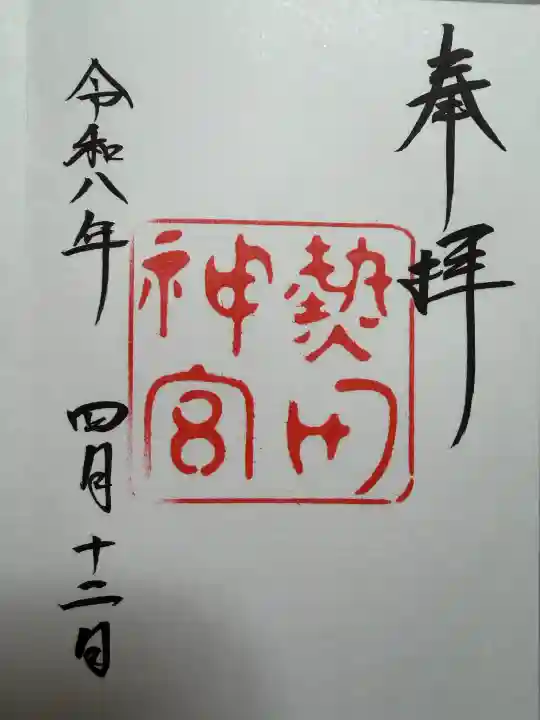 奉拝
熱田
神宮
令和八年
四月十二日